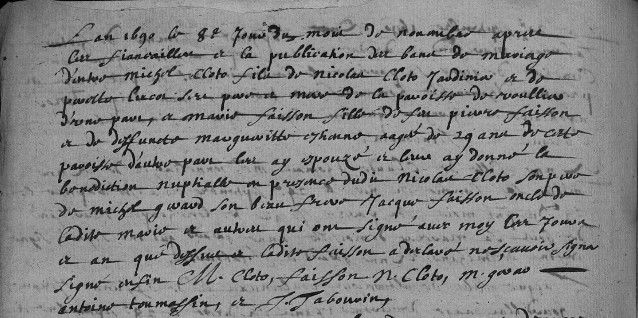 L an 1690 le 8e Jour du mois de nouembre apres
les fiancailles et la publication des bans de mariage
d'entre michel Cloto fils de Nicolas Cloto Jardinier et de
ses pere et mere de la paroisse de
d'vne part, et marie faisson fille de feu pierre faisson
et de deffuncte margueritte agée de 29 ans de cette
paroisse d'autre part les ay espouzé et leur ay donné la
benediction nuptialle en presence dudit Nicolas Cloto son pere
de michel girard son beau frere Jacque faisson oncle de
ladite marie et autres qui ont signé auec moy les Jours
et an que dessus et ladite faisson a declaré ne sçauoir signer
signé enfin M. Cloto, faisson N. Cloto, m.
antoine toumassin, et J. Tabouvin,